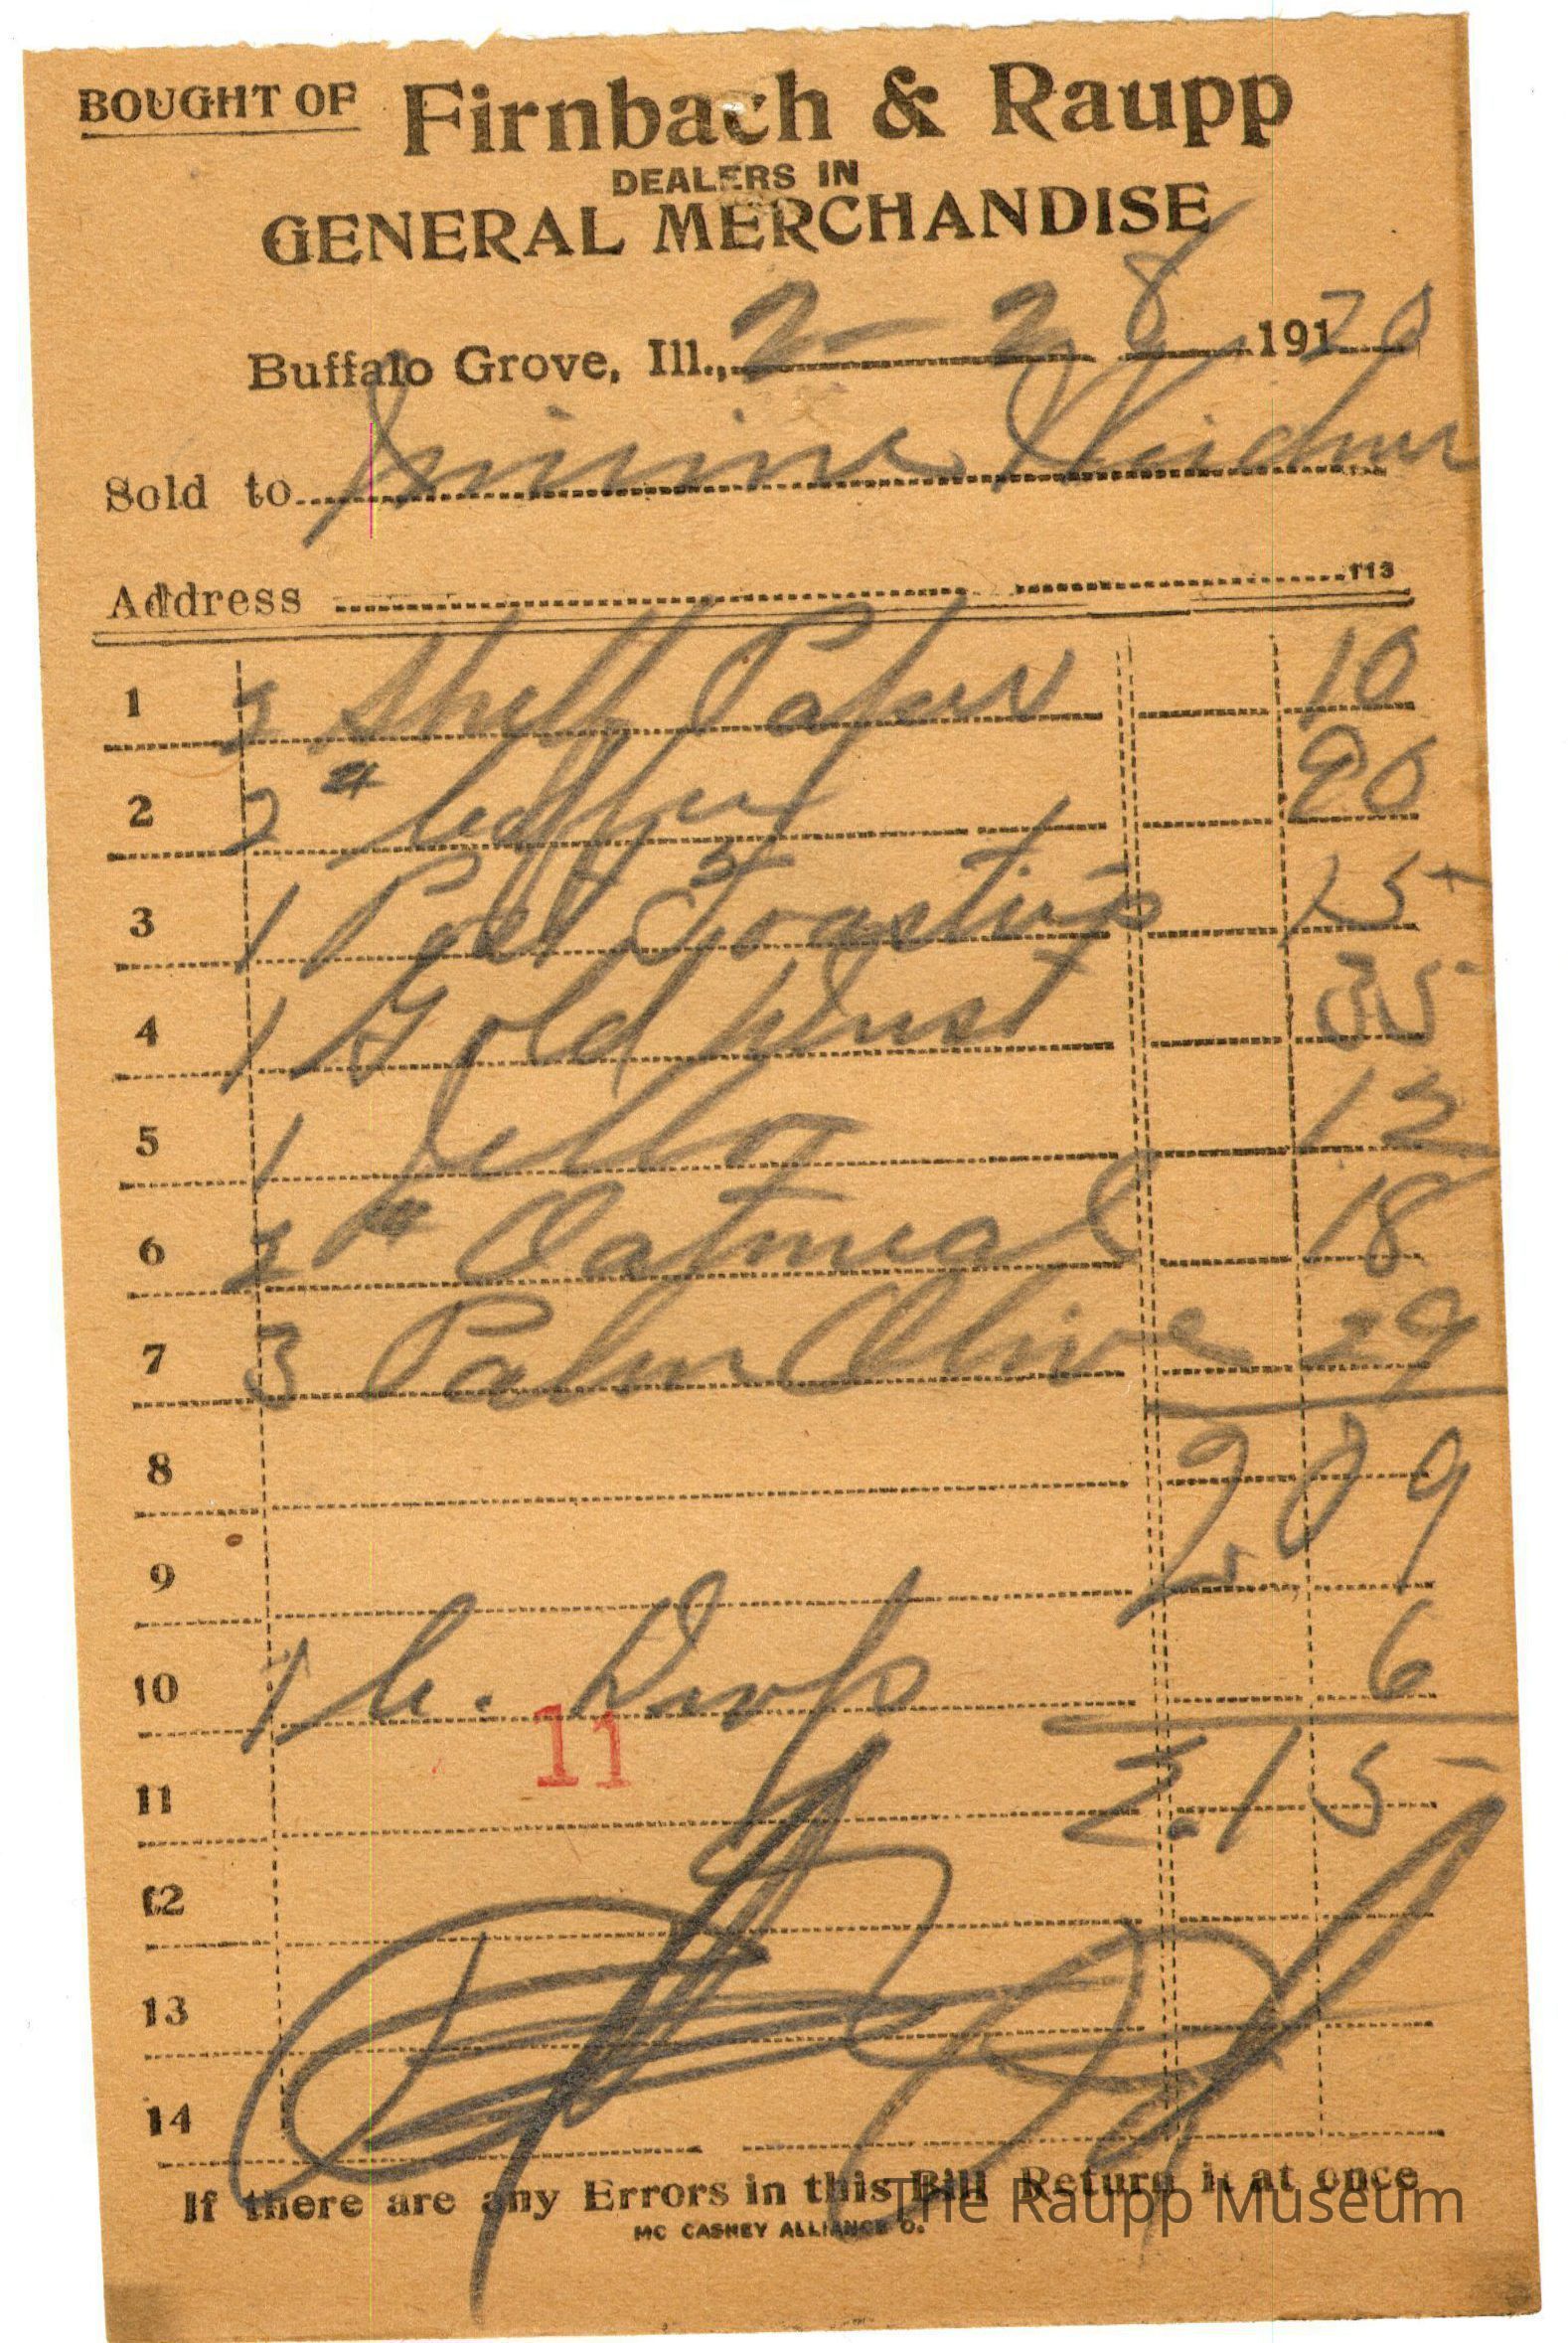 BOUGHT OF Firnbach & Raupp
DEALERS IN
GENERAL MERCHANDISE
Buffalo Grove, Ill., 2-28 191 20
Sold to
Address 113
1 Shelf Paper 10
2 2 # Coffee 90
3 1 Post Toasties 15
4 1 Gold Dust 35
5 1 Jello 12
6 3 # Oatmeal 18
7 3 Palm Olive 29
8 2 09
9
10 1 C. Drop 6
11
11 2.15
12
13
14
If there are any Errors in this Bill Return it at once
MC CASKEY ALLIANCE O.
The Raupp Museum